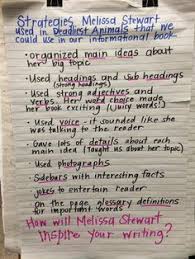 Strategies Melissa Stewart
used in Deadliest Animals that we
could use in our informational book
• organized main ideas about
her big topic
• Used headings and sub headings
(strong headings)
• Used strong adjectives and
verbs. Her word choice made
her book exciting (juicy words!)
• Used voice - it sounded like she
was talking to the reader
• Gave lots of details about each
main idea (Taught us about each topic)
• Used photographs
• Sidebars with interesting facts
• jokes to entertain reader
• On the page glossary definitions
for important words
How will Melissa Stewart
inspire your writing?